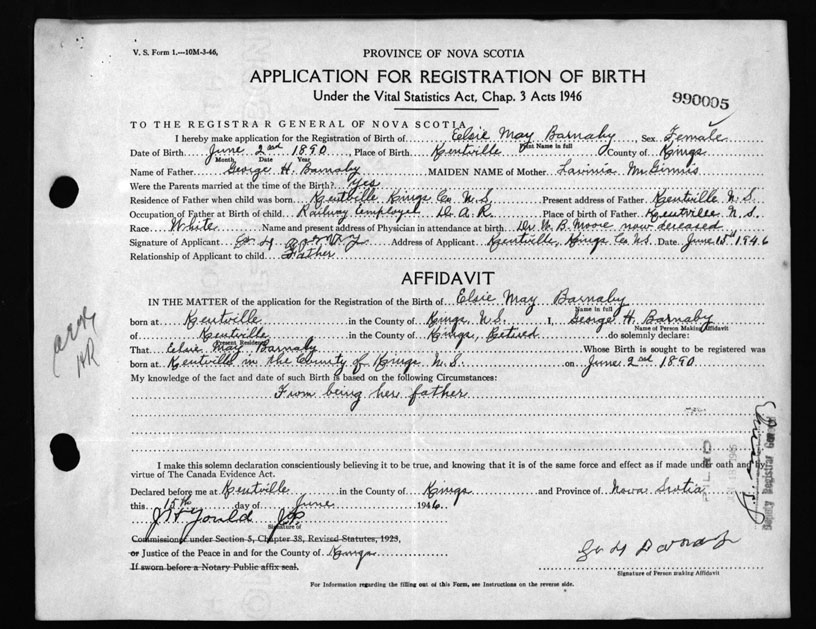 V. S. Form 1.—10M-3-46,
PROVINCE OF NOVA SCOTIA
APPLICATION FOR REGISTRATION OF BIRTH
Under the Vital Statistics Act, Chap. 3 Acts 1946
990005
TO THE REGISTRAR GENERAL OF NOVA SCOTIA
I hereby make application for the Registration of Birth of Elsie May Barnaby Sex Female
Print Name in full
Date of Birth June 2nd 1890, Place of Birth Kentville County of Kings
Month Date Year
Name of Father George H. Barnaby MAIDEN NAME of Mother Lavinia McGinnis
Were the Parents married at the time of the Birth? yes
Residence of Father when child was born Kentville Kings Co N.S. Present address of Father Kentville N.S.
Occupation of Father at Birth of child Railway Employee D.A.R. Place of birth of Father Kentville N.S.
Race White Name and present address of Physician in attendance at birth Dr W. B. Moore now deceased
Signature of Applicant Address of Applicant Kentville, Kings Co NS. Date June 15th 1946
Relationship of Applicant to child Father
AFFIDAVIT
IN THE MATTER of the application for the Registration of the Birth of Elsie May Barnaby
Name in full
born at Kentville in the County of Kings, N.S. I, George H. Barnaby
Name of Person Making Affidavit
of Kentville in the County of Kings, Retired do solemnly declare:
Present Residence
That Elsie May Barnaby Whose Birth is sought to be registered was
born at Kentville in the County of Kings N.S. on June 2nd 1890
My knowledge of the fact and date of such Birth is based on the following Circumstances:
From being her father
I make this solemn declaration conscientiously believing it to be true, and knowing that it is of the same force and effect as if made under oath and by
virtue of The Canada Evidence Act.
Declared before me at Kentville in the County of Kings and Province of Nova Scotia
this 15th day of June 1946.
J.P.
Signature of
Commissioner under Section 5, Chapter 38, Revised Statutes, 1923,
or Justice of the Peace in and for the County of Kings
If sworn before a Notary Public affix seal.
Signature of Person making Affidavit
For Information regarding the filling out of this Form, see Instructions on the reverse side.
Deputy Registrar General